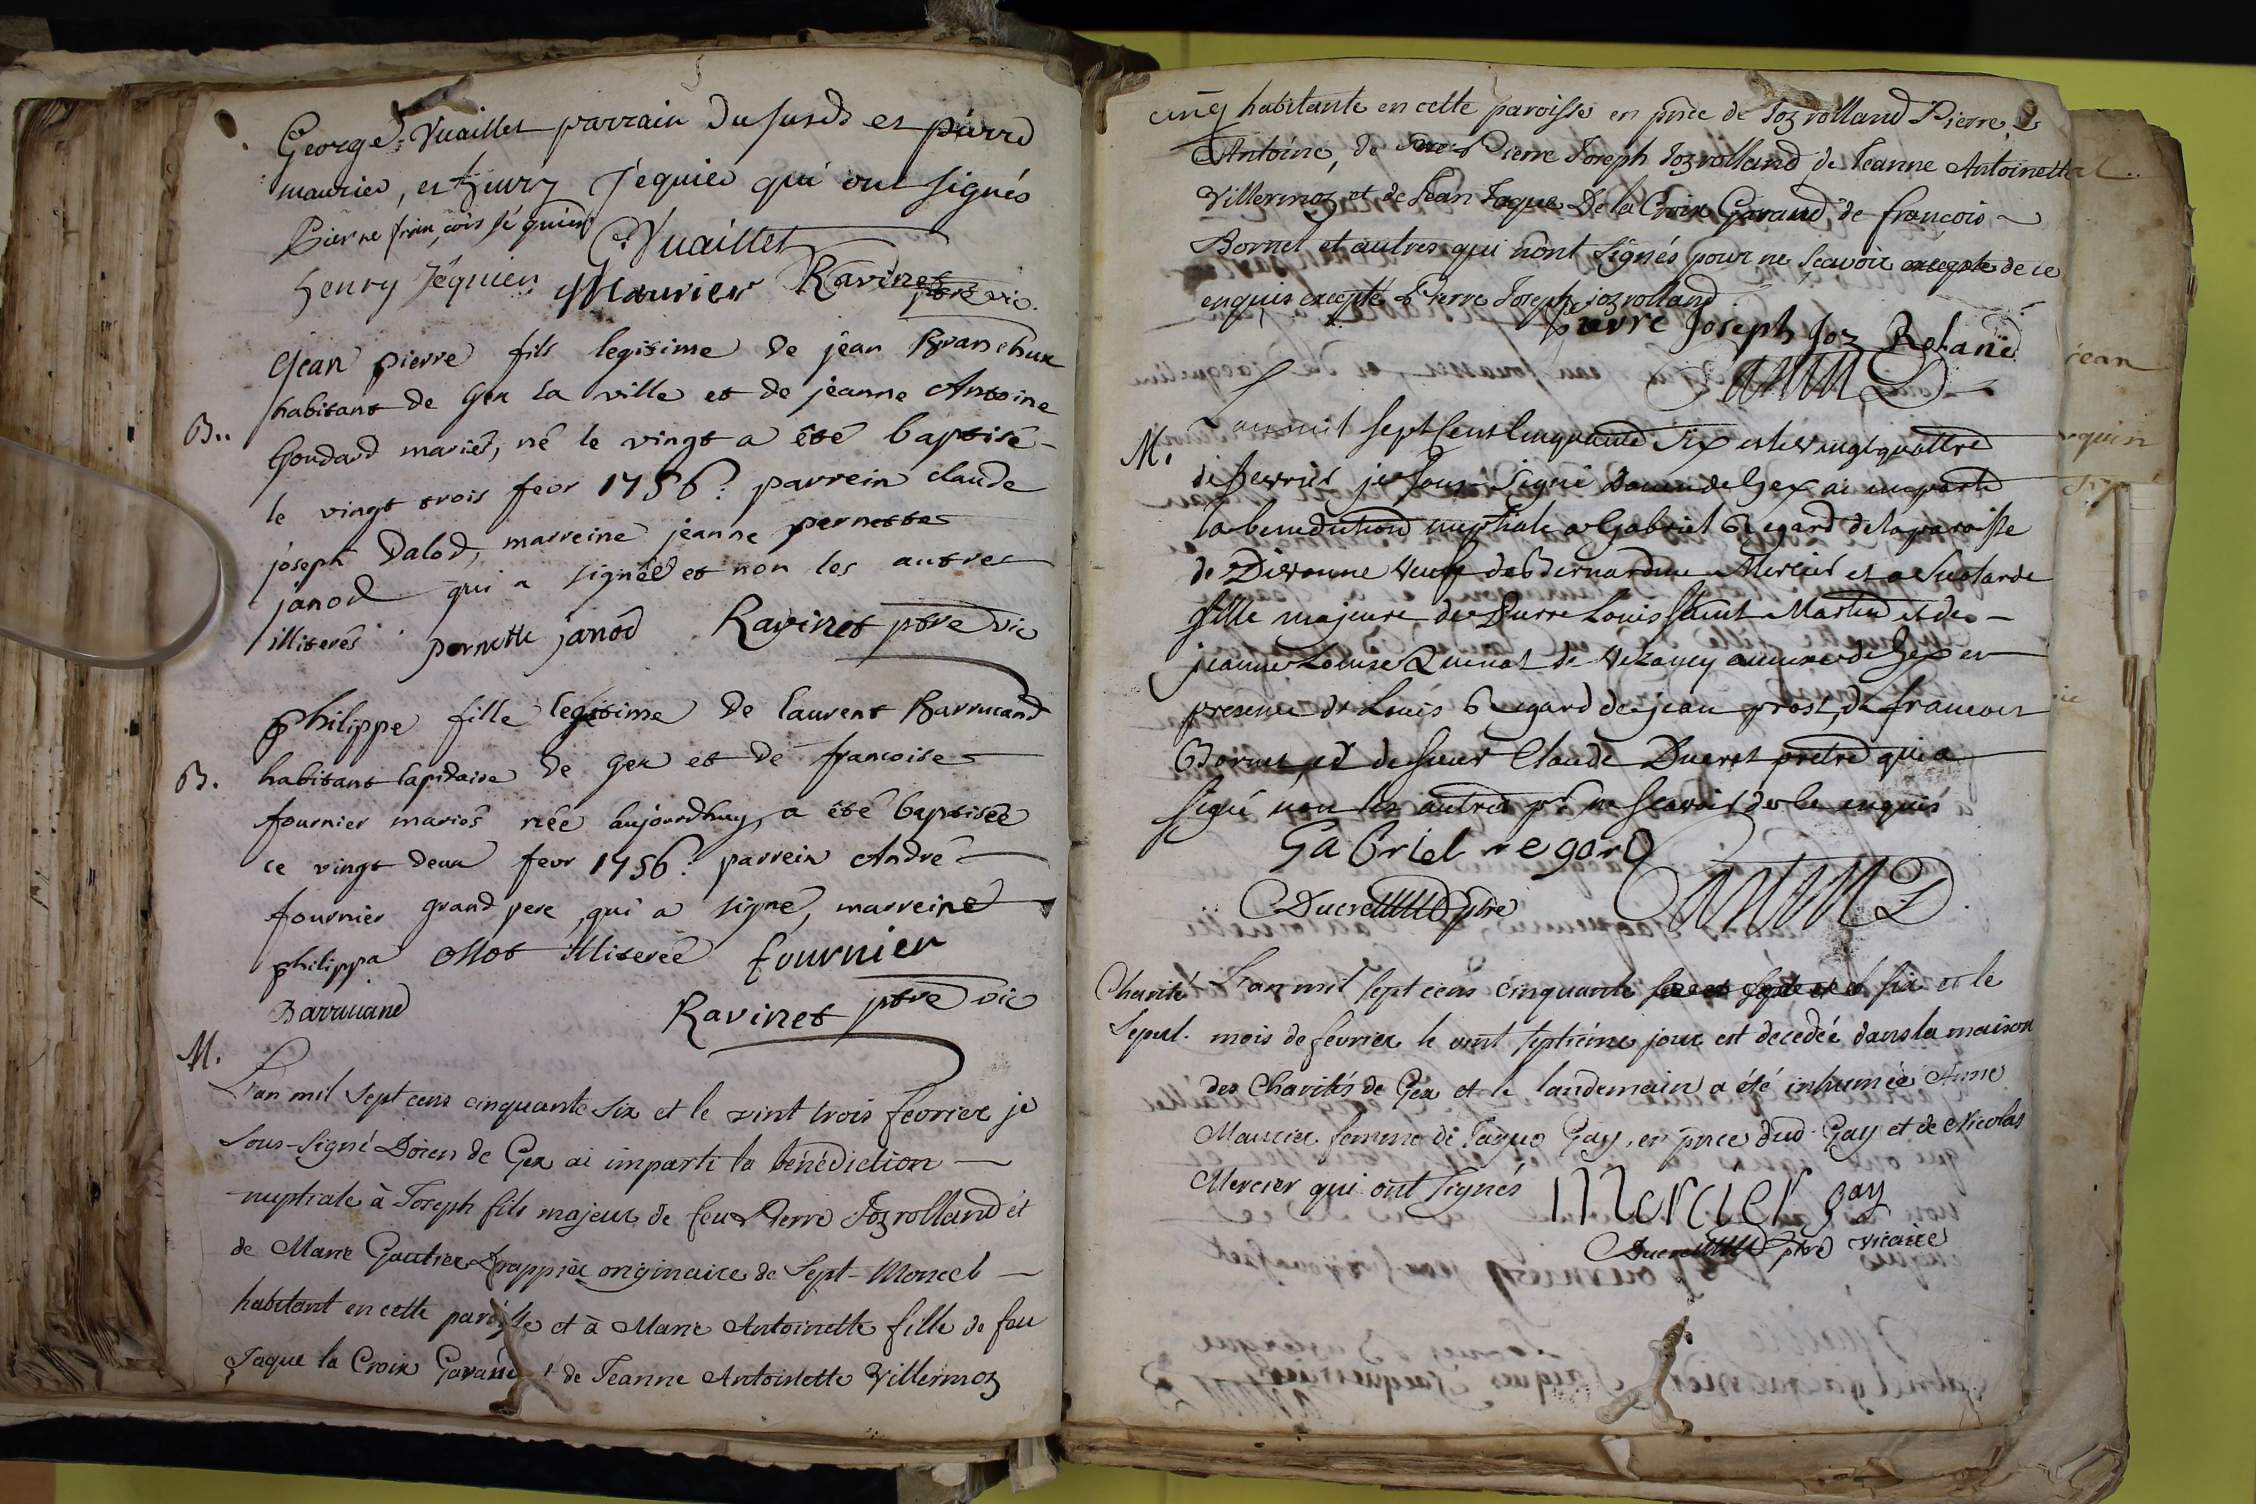 George Vuaillet parrain du susd et pierre
maurier, et henry Jéquier qui ont signés
Pierre françois jéquier G Vuaillet
henry Jéquier Maurier Ravinet ptre vic.
Jean pierre fils legitime de jean Branchux
habitant de Gex la ville et de jeanne Antoine
B.. Goudard mariés, né le vingt a été baptisé
le vingt trois fevr 1756. parrein claude
joseph Dalod, marreine jeanne pernette
janod qui a signée et non les autres
illiterés pernette janod Ravinet ptre vic
philippe fille legitime de laurent Barrucand
B. habitant lapidaire de Gex et de francoise
fournier mariés née aujourdhuy, a été baptisée
ce vingt deux fevr 1756. parrein André
fournier grand pere, qui a signé, marreine
philippa ollot illiterée fournier
Barrucand Ravinet ptre vic
M.
L'an mil sept cens cinquante six et le vint trois fevrier je
sous-signé Doien de Gex ai imparti la bénédiction
nuptiale à Joseph fils majeur de feu Pierre Joz rolland et
de Marie Gautier Drappier originaire de Sept-Moncel
habitant en cette paroisse et à Marie Antoinette fille de feu
Jaque la Croix Gavand et de Jeanne Antoinette Villermoz
habitante en cette paroisse en pnce de Joz rolland Pierre
Antoine, de Pierre Joseph Joz rolland de Jeanne Antoinette
Villermoz et de Jean Jaque De la Croix Gavand de francois
Bornet et autres qui n'ont signés pour ne sçavoir de ce
enquis excepté Pierre Joseph joz rolland.
pierre Joseph Joz Roland
M. Lan mil sept Cent Cinquante six et le vingt quattre
de fevrier je sous-signé Doien de Gex ai imparti
la benediction nuptiale a Gabriel Regard de la paroisse
de Divonne veuf de Bernardine Mercier et a
fille majeure de Pierre Louis saint Martin et de
jeanne Louise Quinat de Vezancy annexe de Gex en
presence de Louis Regard de jean prost, de francois
Bornet, et de sieur Claude Ducret pretre qui a
signé non les autres pr ne scavoir de ce enquis
GaBriel regard
Ducret ptre
Charité L'an mil sept cens cinquante six et le
Sepul. mois de fevrier le vint septième jour est decedée dans la maison
des Charités de Gex et le landemain a été inhumée Anne
Maurier femme de Jaque Gay, en pnce dud Gay et de Nicolas
Mercier qui ont signés Mercier gay
Ducret ptre vicaire